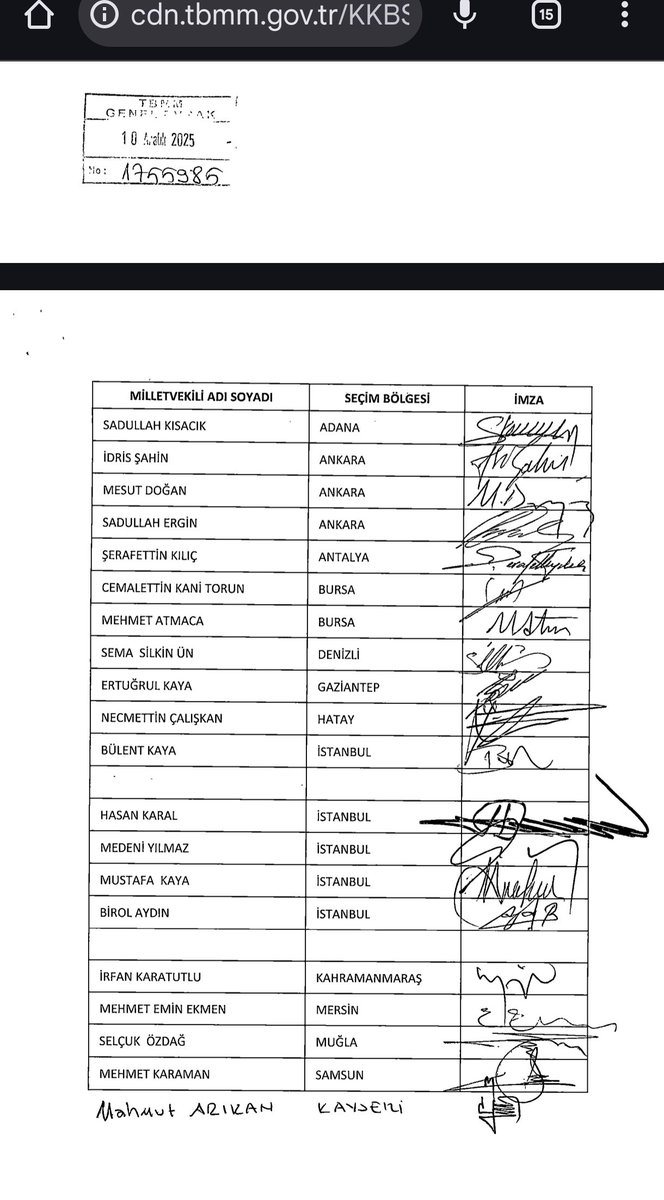 cdn.tbmm.gov.tr/KKBS
15
TBMM
GENEL EVRAK
10 Aralık 2025
No: 1755985
MİLLETVEKİLİ ADI SOYADI SEÇİM BÖLGESİ İMZA
SADULLAH KISACIK ADANA
İDRİS ŞAHİN ANKARA
MESUT DOĞAN ANKARA M.D
SADULLAH ERGİN ANKARA
ŞERAFETTİN KILIÇ ANTALYA
CEMALETTİN KANİ TORUN BURSA
MEHMET ATMACA BURSA
SEMA SİLKİN ÜN DENİZLİ
ERTUĞRUL KAYA GAZİANTEP
NECMETTİN ÇALIŞKAN HATAY
BÜLENT KAYA İSTANBUL
HASAN KARAL İSTANBUL
MEDENİ YILMAZ İSTANBUL
MUSTAFA KAYA İSTANBUL
BİROL AYDIN İSTANBUL
İRFAN KARATUTLU KAHRAMANMARAŞ
MEHMET EMİN EKMEN MERSİN
SELÇUK ÖZDAĞ MUĞLA
MEHMET KARAMAN SAMSUN
Mahmut ARIKAN KAYSERİ